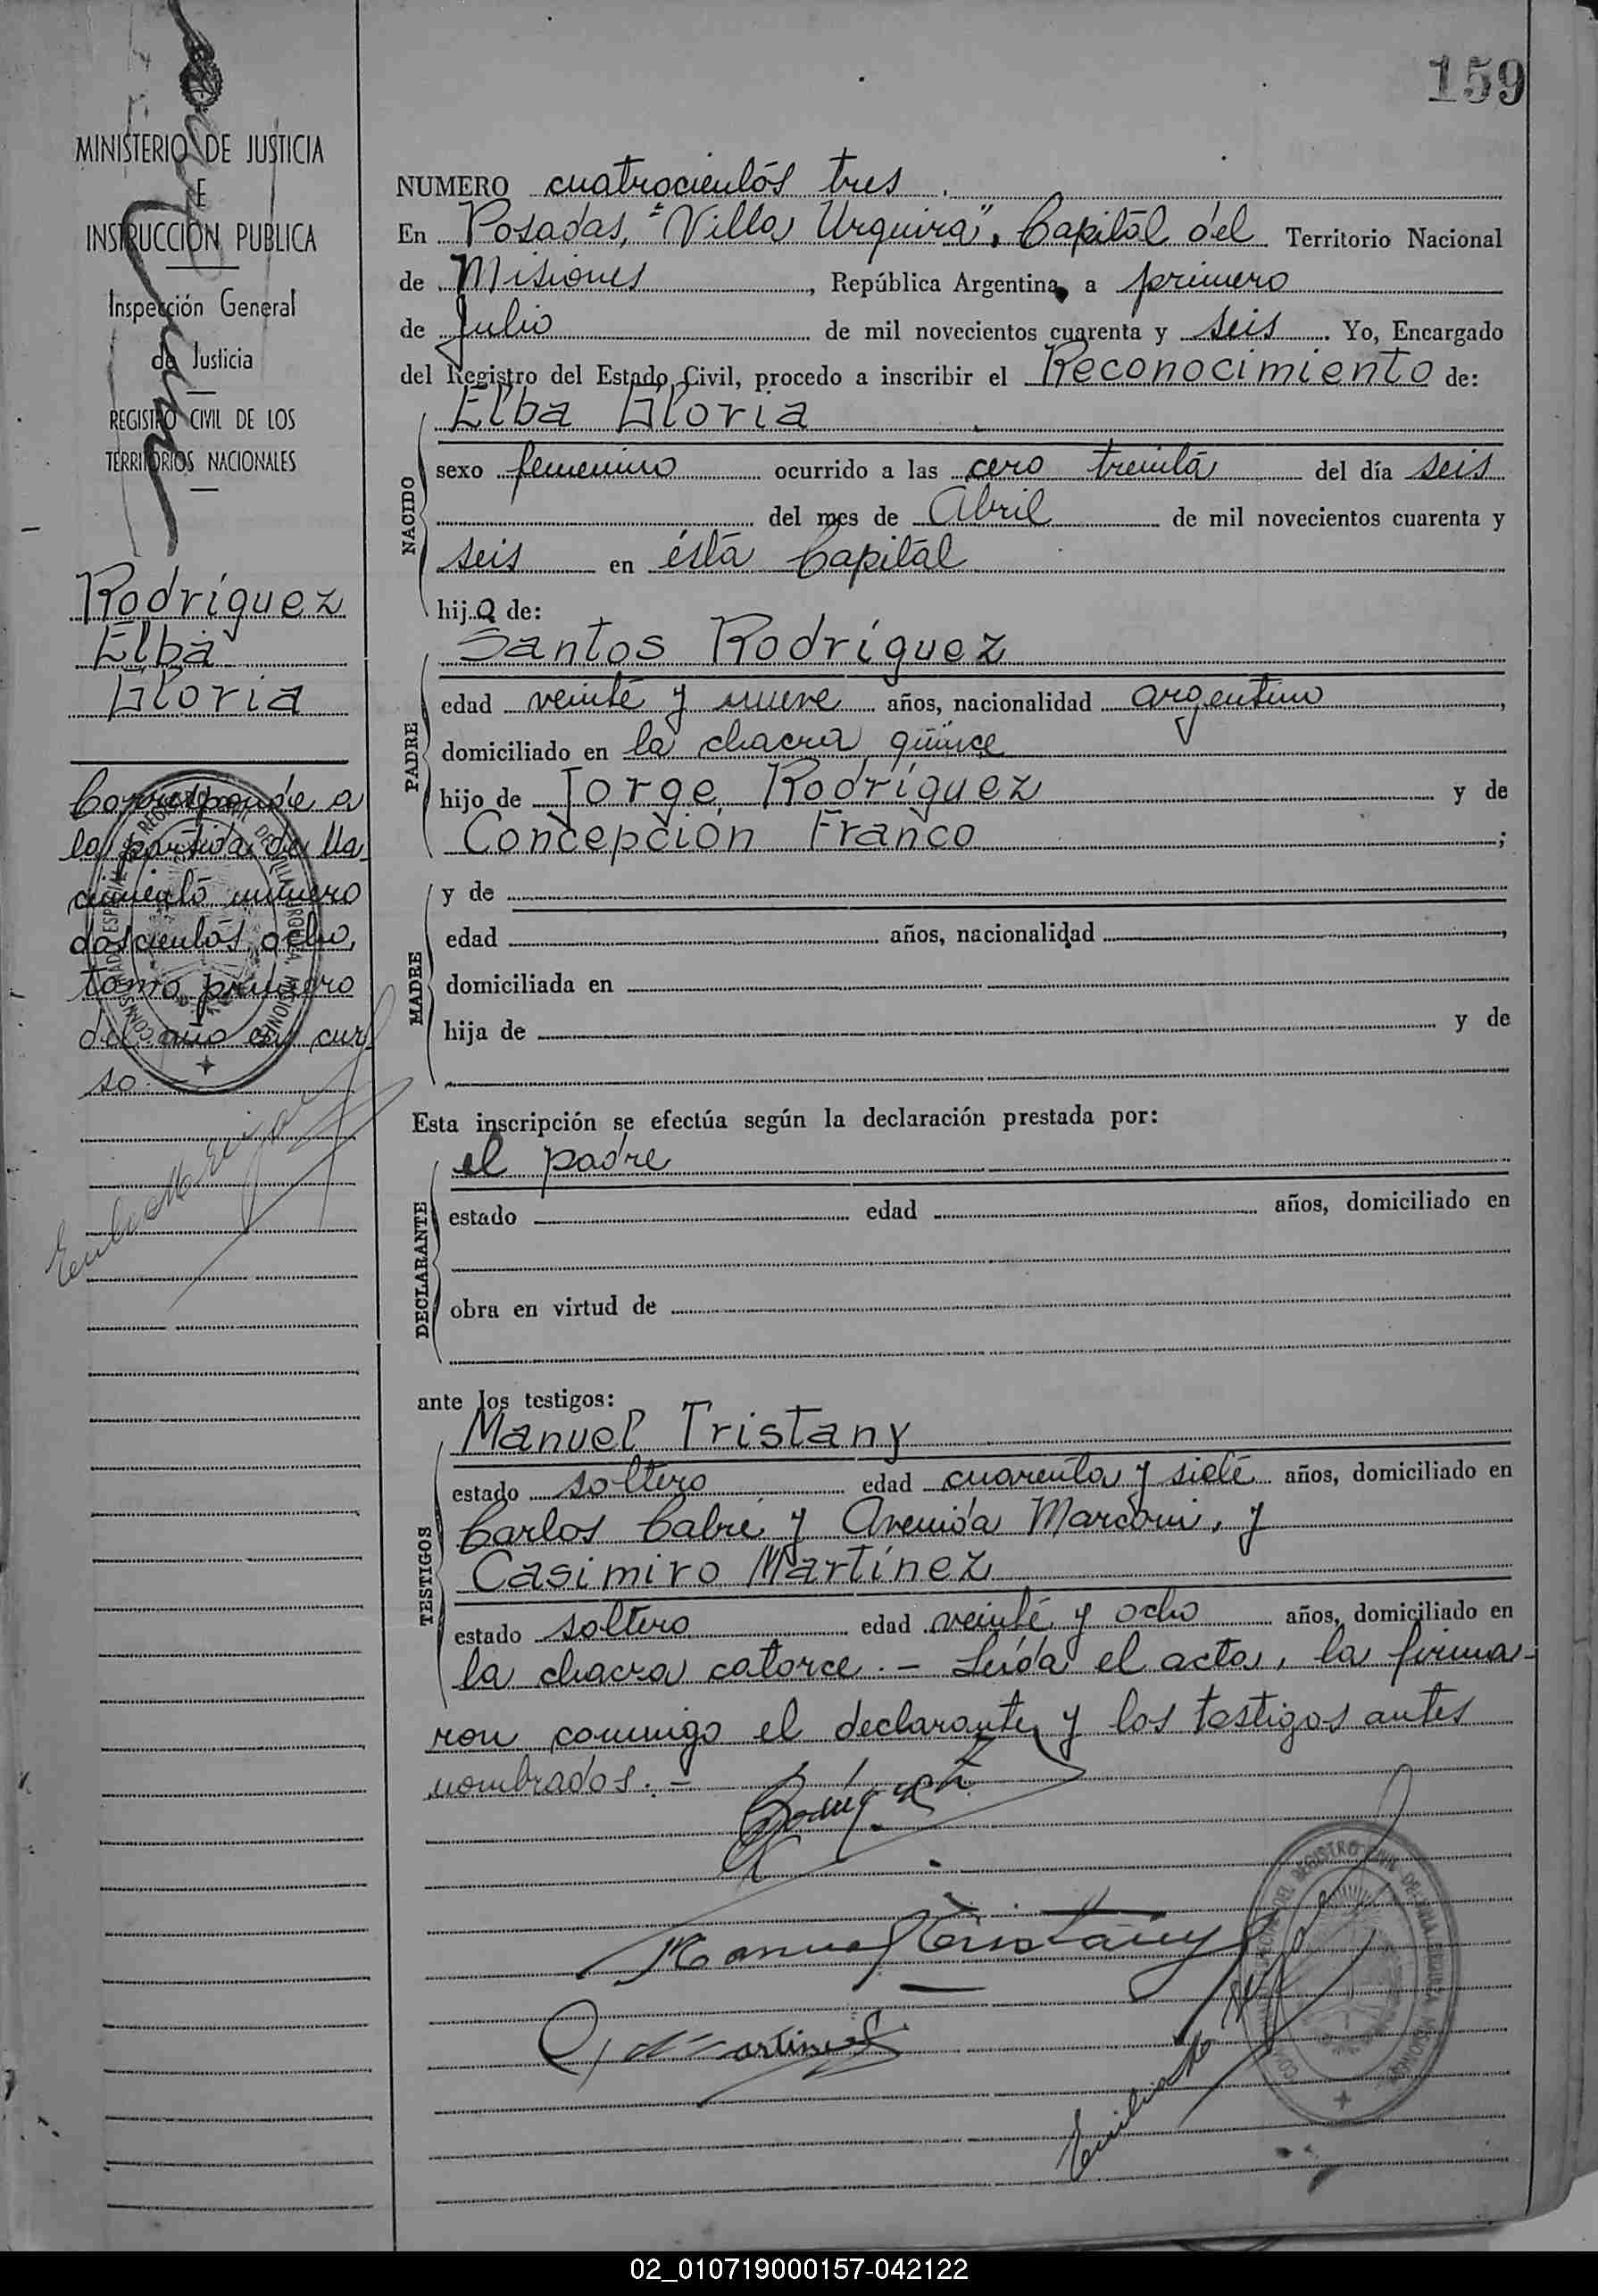 159
MINISTERIO DE JUSTICIA
E
INSTRUCCION PUBLICA
Inspección General
de Justicia
REGISTRO CIVIL DE LOS
TERRITORIOS NACIONALES
Rodríguez
Elba
Gloria
Corresponde a
la partida de Na
cimiento número
doscientos ocho,
tomo primero
del año en cur
so.
NUMERO cuatrocientos tres.
En Posadas, "Villa Urquiza", Capital del Territorio Nacional
de Misiones, República Argentina, a primero
de Julio de mil novecientos cuarenta y seis. Yo, Encargado
del Registro del Estado Civil, procedo a inscribir el Reconocimiento de:
NACIDO
Elba Gloria
sexo femenino ocurrido a las cero treinta del día seis
del mes de Abril de mil novecientos cuarenta y
seis en ésta Capital
hija de:
PADRE
Santos Rodríguez
edad veinte y nueve años, nacionalidad argentino,
domiciliado en la chacra quince
hijo de Jorge Rodríguez y de
Concepción Franco;
MADRE
y de
edad años, nacionalidad,
domiciliada en
hija de y de
Esta inscripción se efectúa según la declaración prestada por:
DECLARANTE
el padre
estado edad años, domiciliado en
obra en virtud de
ante los testigos:
TESTIGOS
Manuel Tristany
estado soltero edad cuarenta y siete años, domiciliado en
Carlos Calré y Avenida Marconi, y
Casimiro Martínez
estado soltero edad veinte y ocho años, domiciliado en
la chacra catorce.- Leída el acta, la firma-
ron conmigo el declarante y los testigos antes
nombrados.-
Rodríguez
Manuel Tristany
C, Martinez
02_010719000157-042122